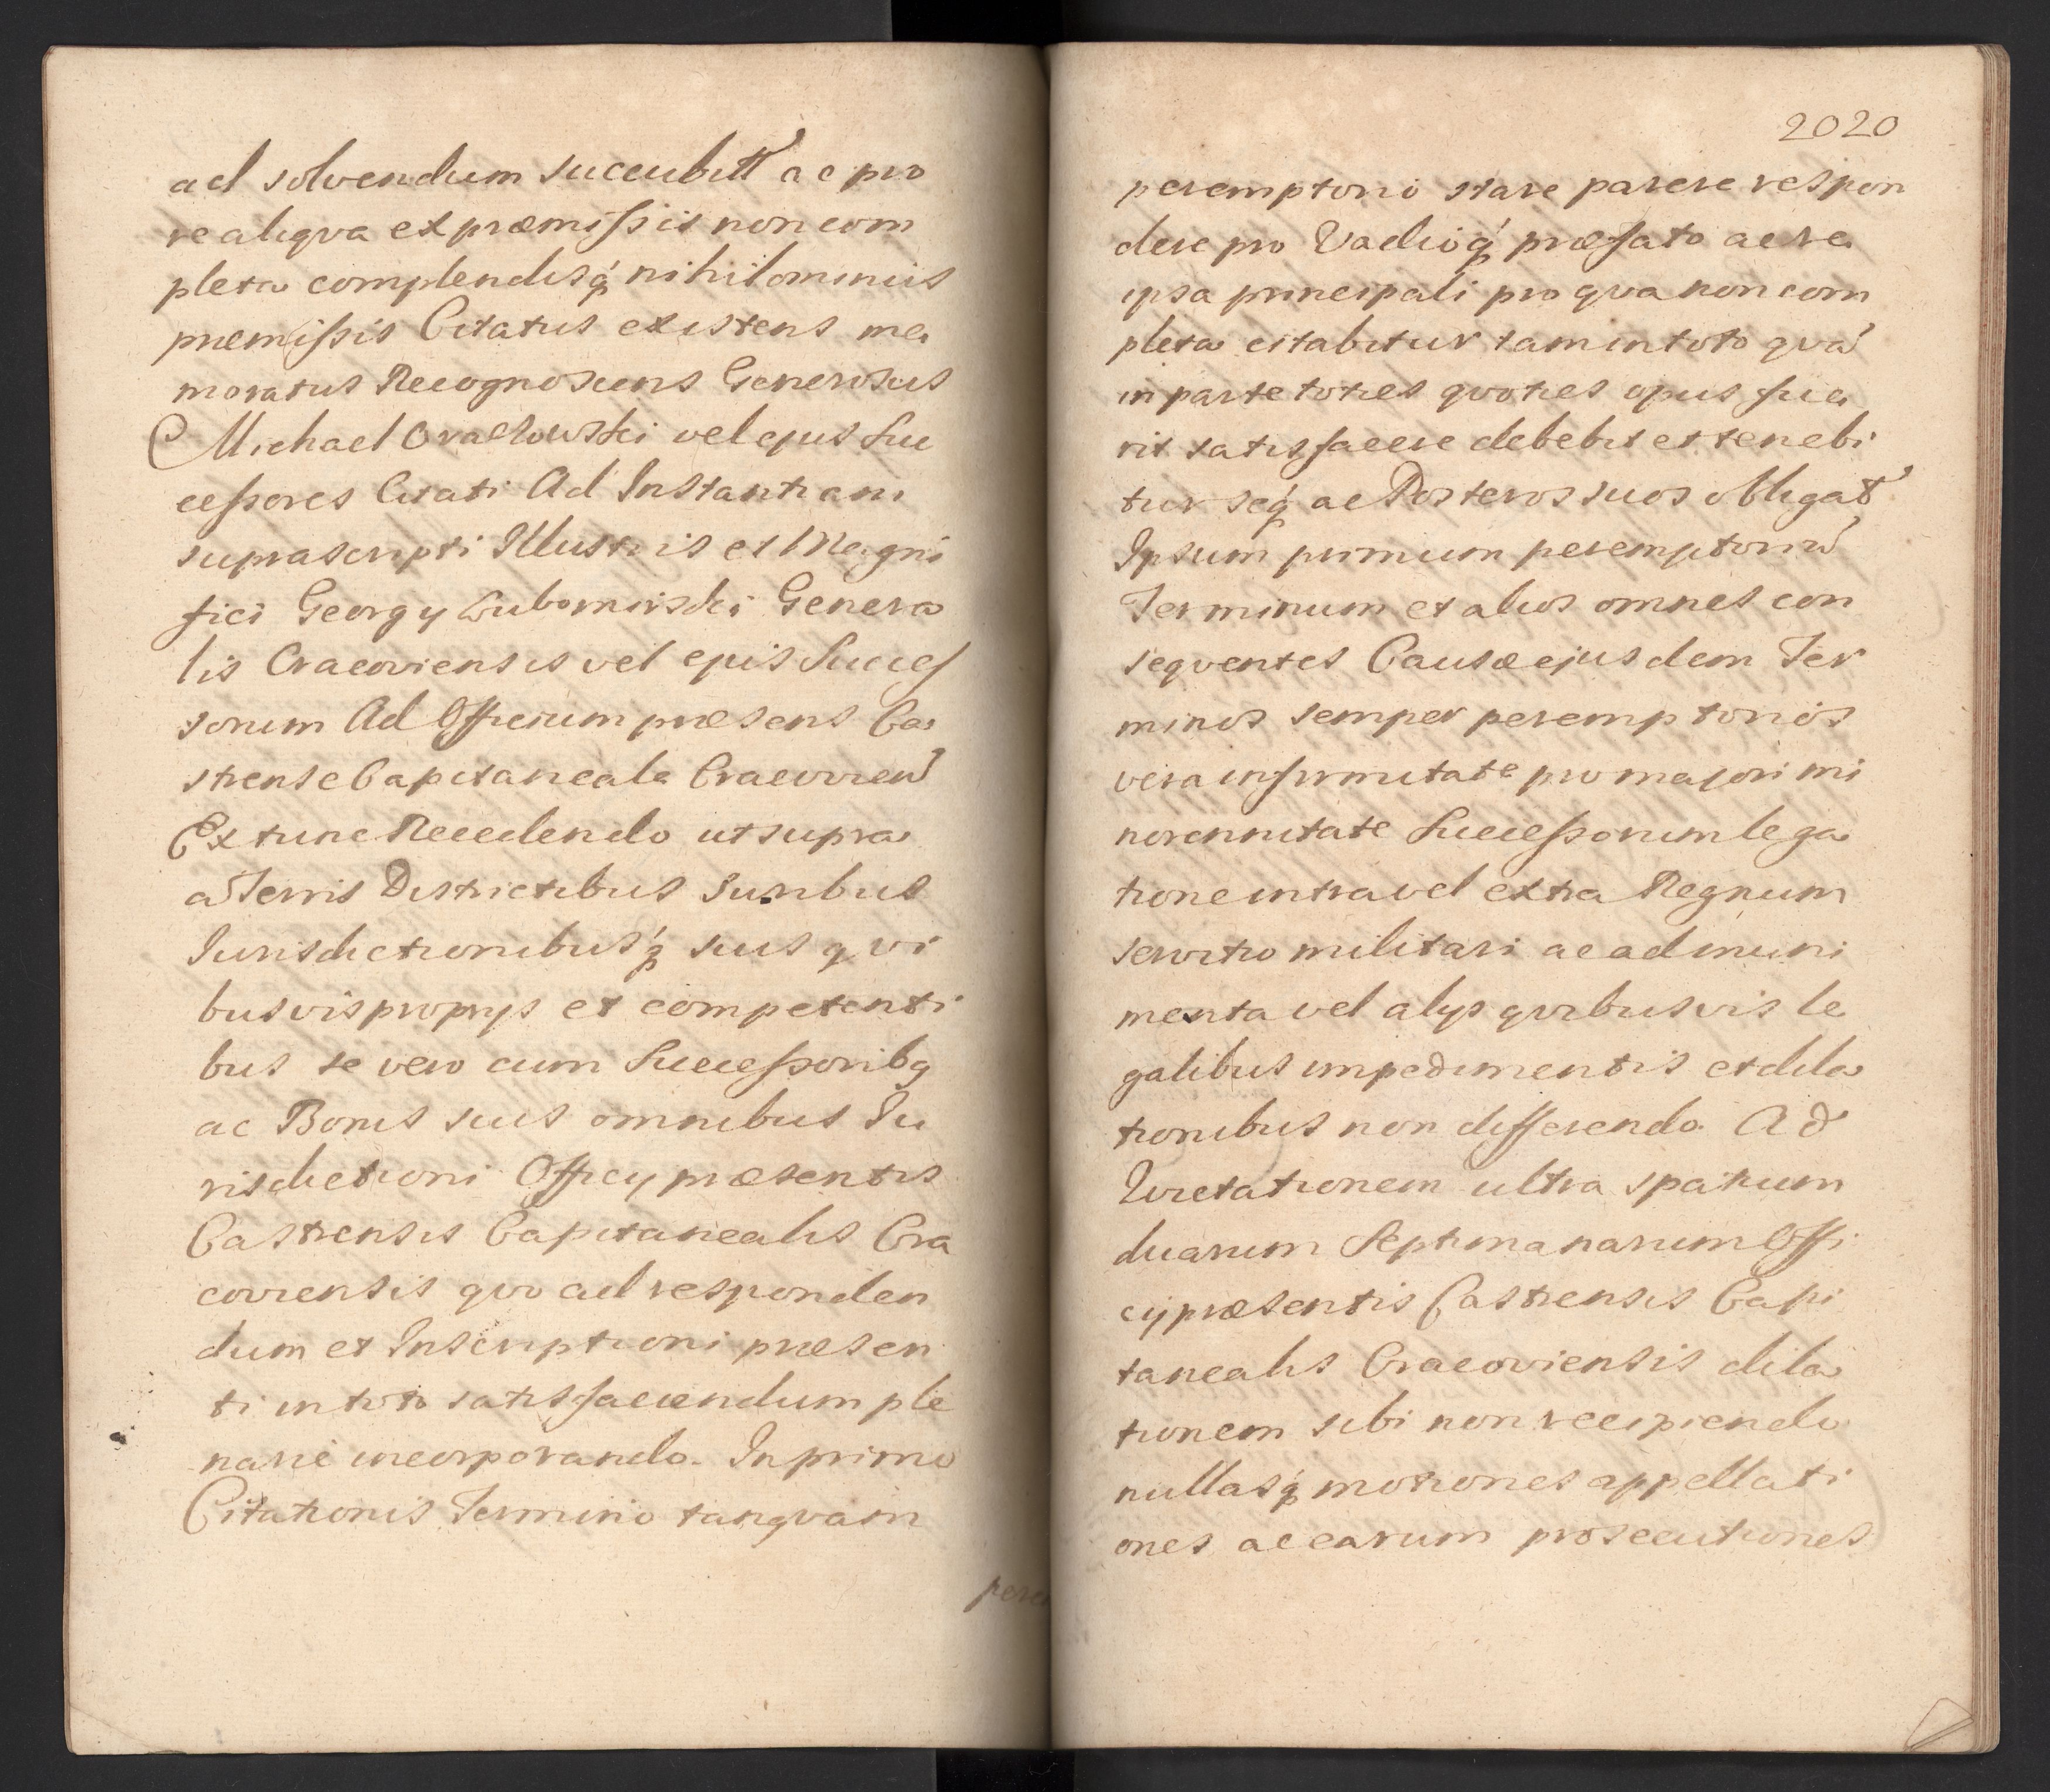 ad solvendum succubitt ac pro
re aliqva ex præmissis non com
pleta complendisq́ nihilominus
præmissis Citatus existens me
moratus Recognoscens Generosus
Michael vel ejus Suc
cessores Citati Ad Instantiam
suprascripti Illustris et Magni
fici Georgy Lubomirski Genera
lis Cracoviensis vel ejus Succes
sorum Ad Officium præsens Ca
strense Capitaneale Cracovien
Ex tunc Recedendo ut supra
a Terris Districtibus Juribus
Jurisdictionibusq́ suis qvi
busvis proprys et competenti
bus se vero cum Successoribq
ac Bonis suis omnibus Ju
risdictioni Officy præsentis
Castrensis Capitanealis Cra
coviensis qvo ad responden
dum et Inscriptioni præsen
ti in toto satisfaciendum ple
narie incorporando. In primo
Citationis Termino tanqvam
pere
2020
peremptorio stare parere respon
dere pro Vadioq́ præfato ac re
ipsa principali pro qva non com
pleta citabitur tam in toto qva
in parte toties qvoties opus fue
rit satisfacere debebit et tenebi
tur seq́ ac Posteros suos obligat
Ipsum primum peremptoriu
Terminum et alios omnes con
seqventes Causæ ejusdem Ter
minos semper peremptorios
vera infirmitate pro majori mi
norennitate Successorum lega
tione intra vel extra Regnum
servitio militari ac ad muni
menta vel alys qvibusvis le
galibus impedimentis et dila
tionibus non differendo Ad
Luctationem ultra spatium
duarum Septimanarum Offi
cy præsentis Castrensis Capi
tanealis Cracoviensis dila
tionem sibi non recipiendo
nullasq́ motiones appellati
ones ac earum prosecutiones